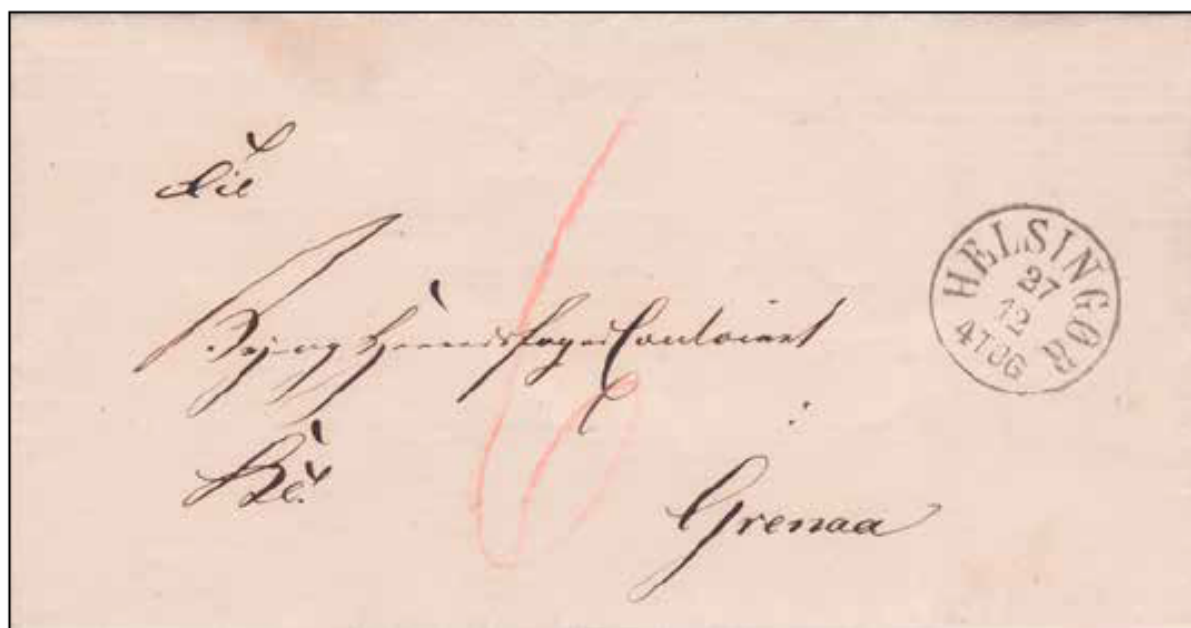 Til
By og Herredsfoged Contoiret
i
Grenaa
HELSINGØR
27
12
4TOG
6